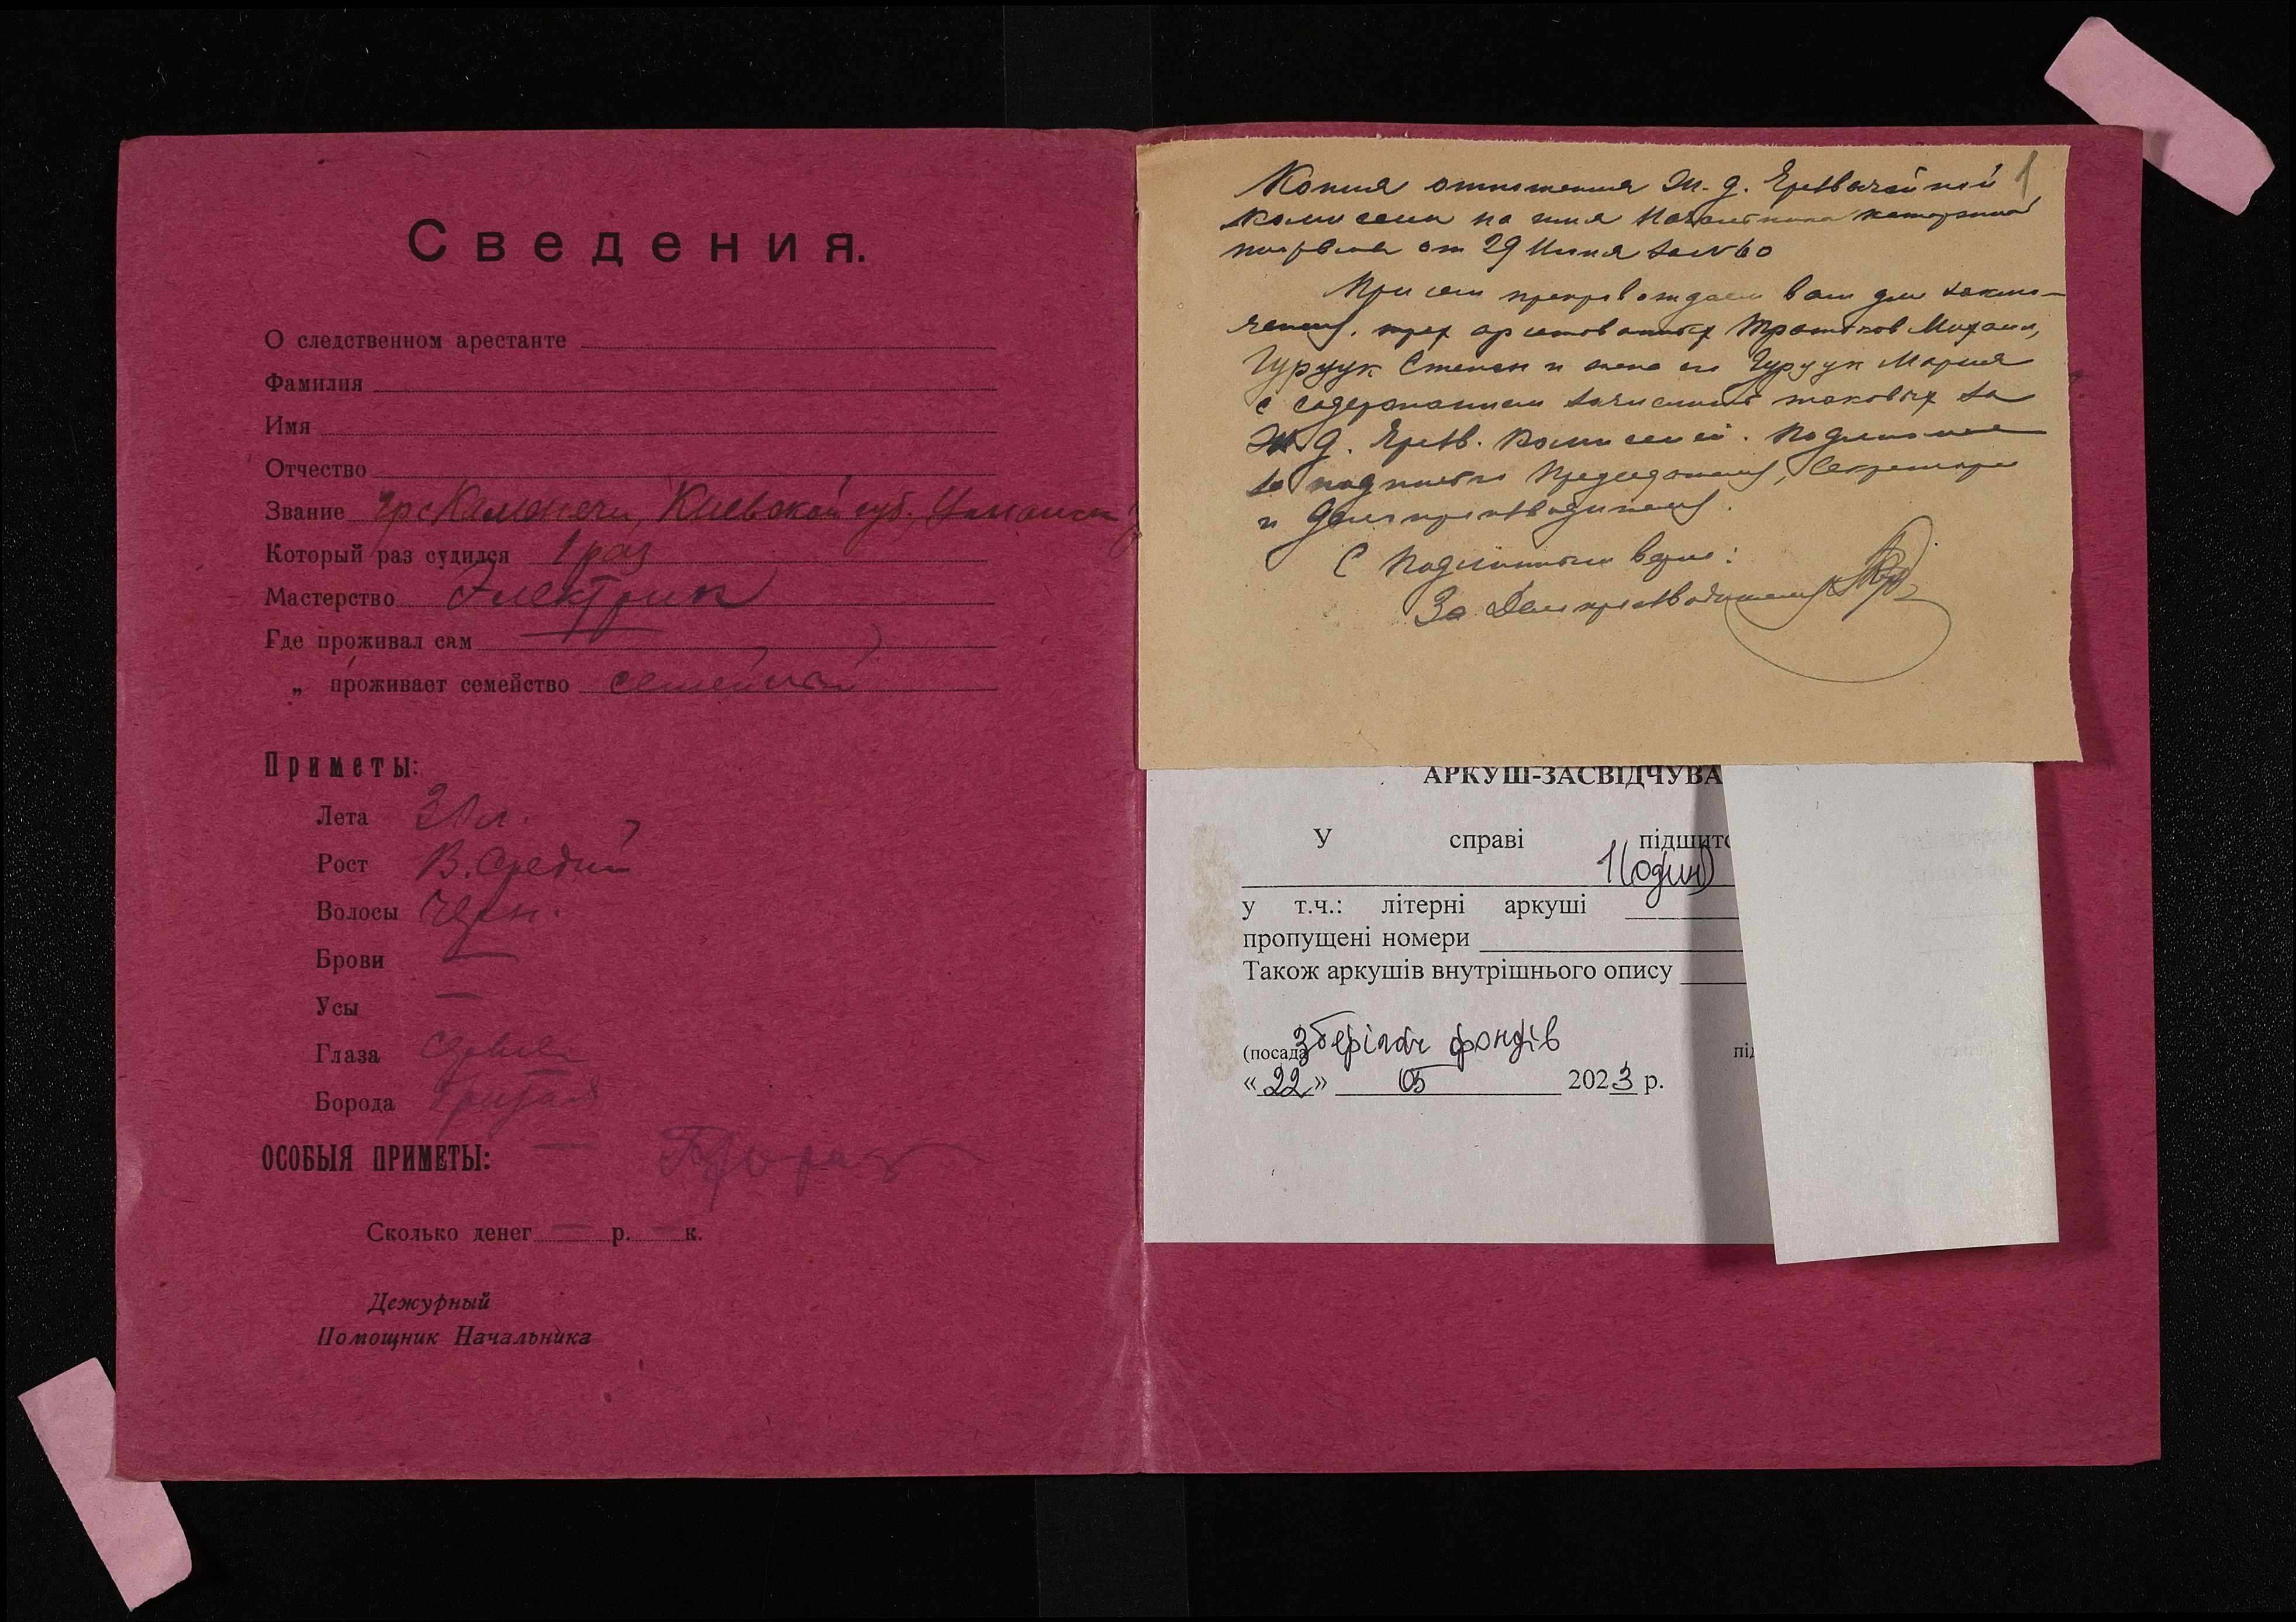 Сведения.
О следственном арестанте
Фамилия
Имя
Отчество
Звание гр. Киевской губ.,
Который раз судился 1 раз
Мастерство Электрик
Где проживал сам
„ проживает семейство семейный
Приметы:
Лета
Рост В. Средний
Волосы Черн.
Брови —
Усы —
Глаза
Борода бритая
ОСОБЫЯ ПРИМЕТЫ: —
Сколько денег — р. — к.
Дежурный
Помощник Начальника
1
Копия отношения Ж. д. Чрезвычайной
комиссии на имя Начальника каторжной
тюрьмы от 29 Июня за № 60
При сем препровождаем вам для заклю-
чения, трех арестованных Михаил,
Гурчук Степан и жена его Гурчук Мария
с содержанием зачислить таковых за
Ж. д. Чрезв. Комиссией. Подлинное
за подписью Председателя, Секретаря
и Делопроизводителя.
С Подлинным верно:
За Делопроизводителя
АРКУШ-ЗАСВІДЧУВА
У справі підшито
1 (один)
у т.ч.: літерні аркуші
пропущені номери
Також аркушів внутрішнього опису
(посада зберігач фондів під
« 22 » 05 2023 р.